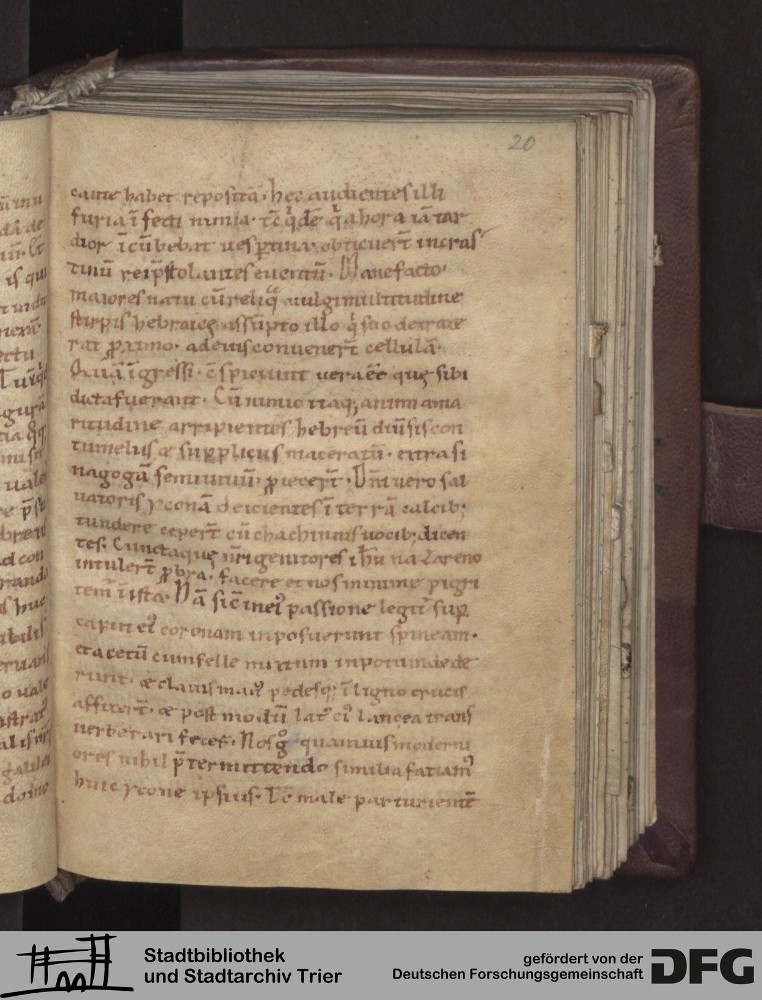 20
caute habet repositā. hec audientes illi
furia īfecti nimia. tc̄ qͥdē qͥa hora iā tar
dior īcūbebat uesptina. obticuer̄t in cras
tinū rei pͬstolantes euentū. Mane facto.
maiores natu cū reliqͣ uulgi multitudine
stirpis hebraicę assūpto illo qͥ suo detraxe
rat ꝓximo. ad eius conuener̄t cellulā.
Quā īgressi. cspiciunt uera ēe̅ quę sibi
dicta fuerant. Cū nimio itaq; animi ama
ritudine arripientes hebreū diūsis con
tumeliis & suppliciis maceratū. extra si
nagogā semiuiuū ꝓiecer̄t. Dn̄i uero sal
uatoris yconā deicientes ī terrā calcib;
tundere ceper̄t cū chachinnis uocib; dicen
tes. Cunctaque nr̄i genitores ihū nazareno
intuler̄t ꝓbra. facere et nos minime pigri
tem̄ ī ista. Nā sic̄ in eiꝰ passione legit̄ sup
capiti eiꝰ coronam inposuerunt spineam.
et acetū cum felle mixtum in potum dede
runt. & clauis manꝰ pedesq; ī ligno crucis
affixer̄t. & post modū latꝰ eiꝰ lancea trans
uerberari fecer̄. Nos gͦ quamuis moderni
ores nihil p̄termittendo similia faciamꝰ
huic ycone ipsius. Dc̄ male parturiente
Stadtbibliothek
und Stadtarchiv Trier
gefördert von der
Deutschen Forschungsgemeinschaft
DFG